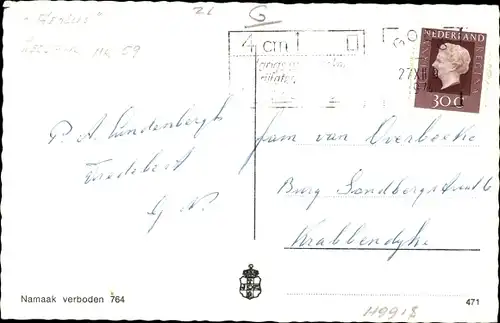 21
G
59
4 CM
NEDERLAND
JULIANA REGINA
30 c
P. A. Lindenbergh
Vredebest
G. N.
Fam van Overbeeke
Burg Sandbergstraat 6
Krabbendijke
Namaak verboden 764
471
H9918